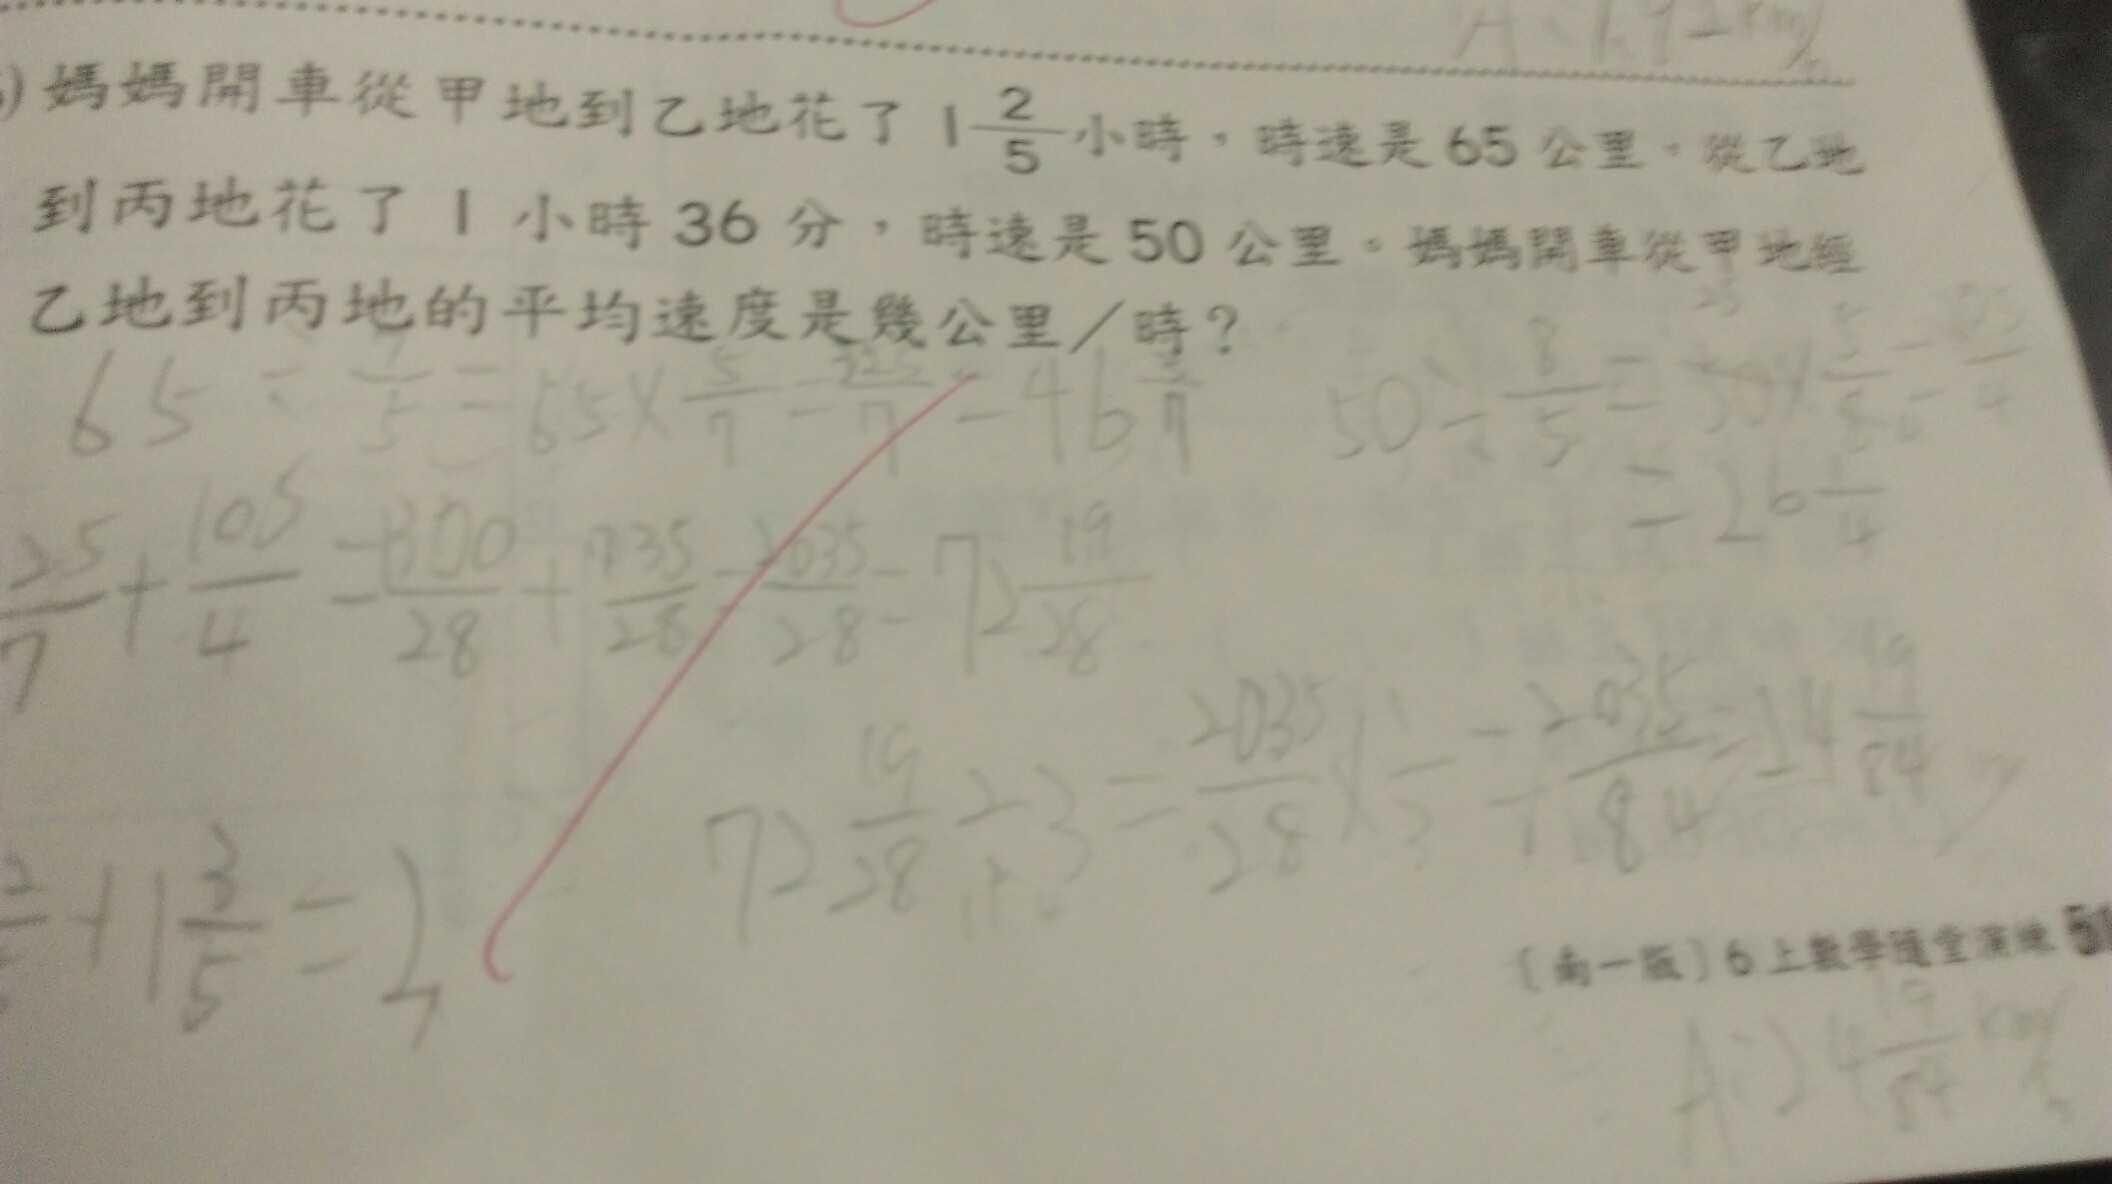 A: 1.92 km/
) 媽媽開車從甲地到乙地花了 1 2/5 小時，時速是 65 公里。從乙地
到丙地花了 1 小時 36 分，時速是 50 公里。媽媽開車從甲地經
乙地到丙地的平均速度是幾公里／時？
65 ÷ 7/5 = 65 × 5/7 = 325/7 = 46 3/7
50 ÷ 8/5 = 50 × 5/8 =
= 26 1/4
25/7 + 105/4 = 1300/28 + 735/28 = 2035/28 = 72 19/28
72 19/28 ÷ 3 = 2035/28 × 1/3 = 2035/84 = 24 19/84
+ 1 3/5 =
〔南一版〕6 上數學隨堂演練 51
A: 24 19/84 km/